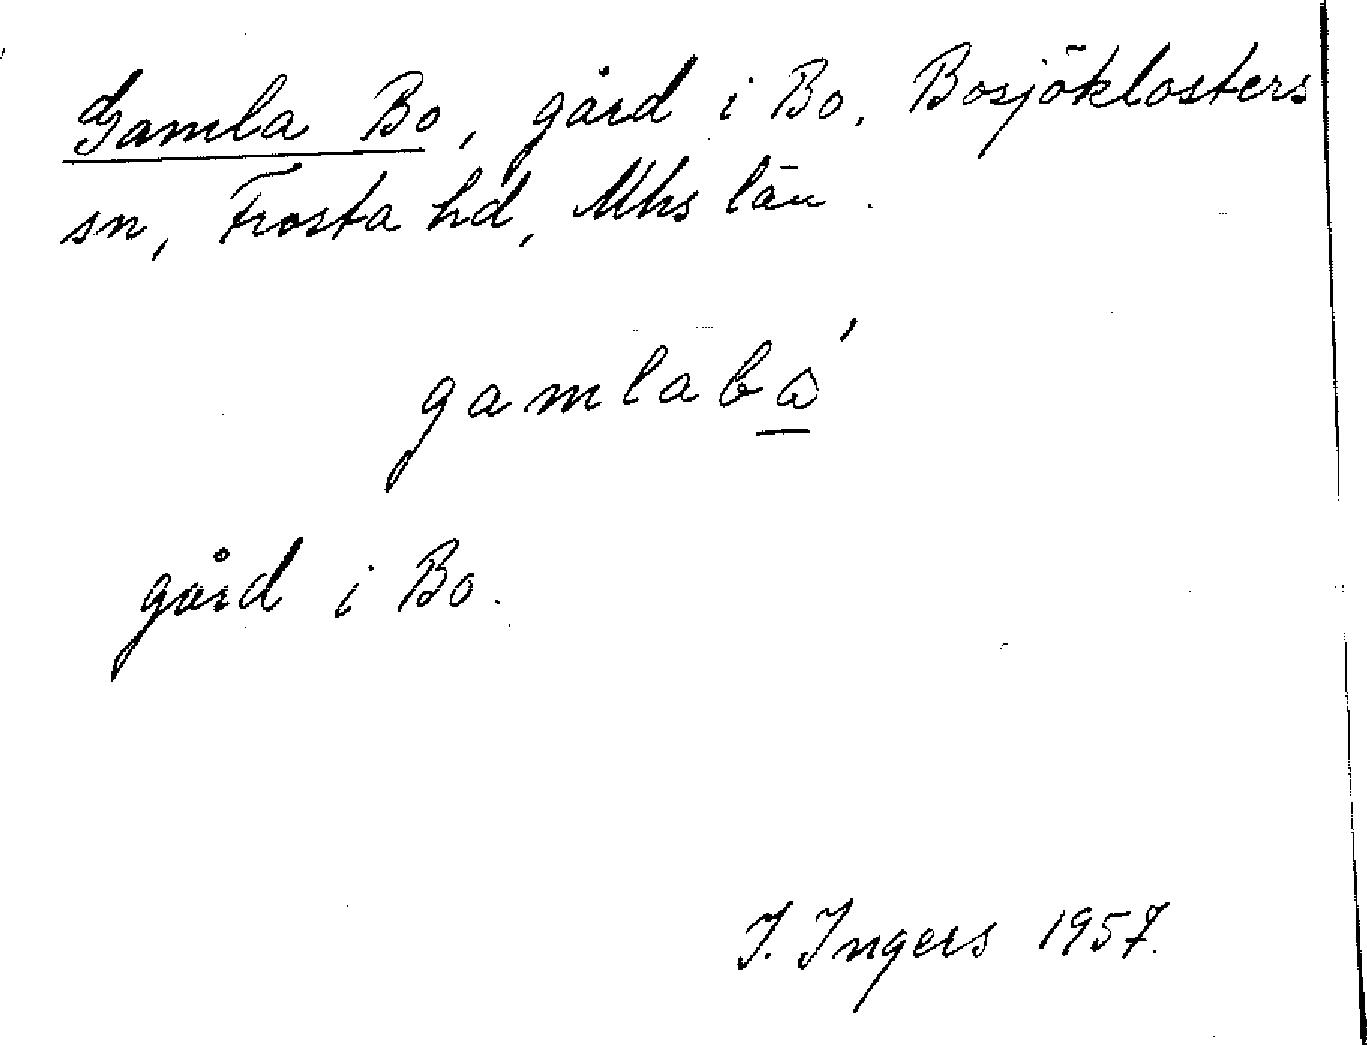 Gamla Bo, gård i Bo, Bosjöklosters
sn, Frosta hd, Mhs län.
gamlabώ̲
gård i Bo.
I. Ingers 1957.